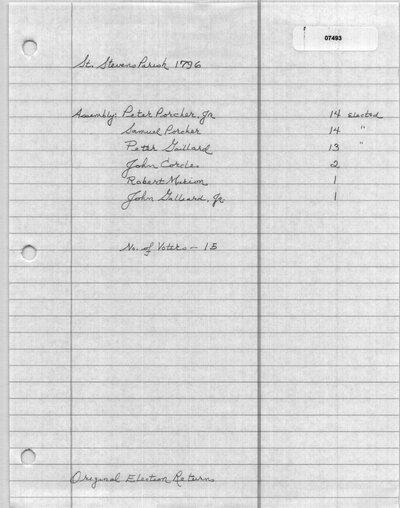 07493
St. Stevens Parish 1796
Assembly: Peter Porcher, Jr 14 Elected
Samuel Porcher 14 "
Peter Gaillard 13 "
John Cordes 2
Robert Marion 1
John Galleard, Jr 1
No. of Voters - 15
Original Election Returns